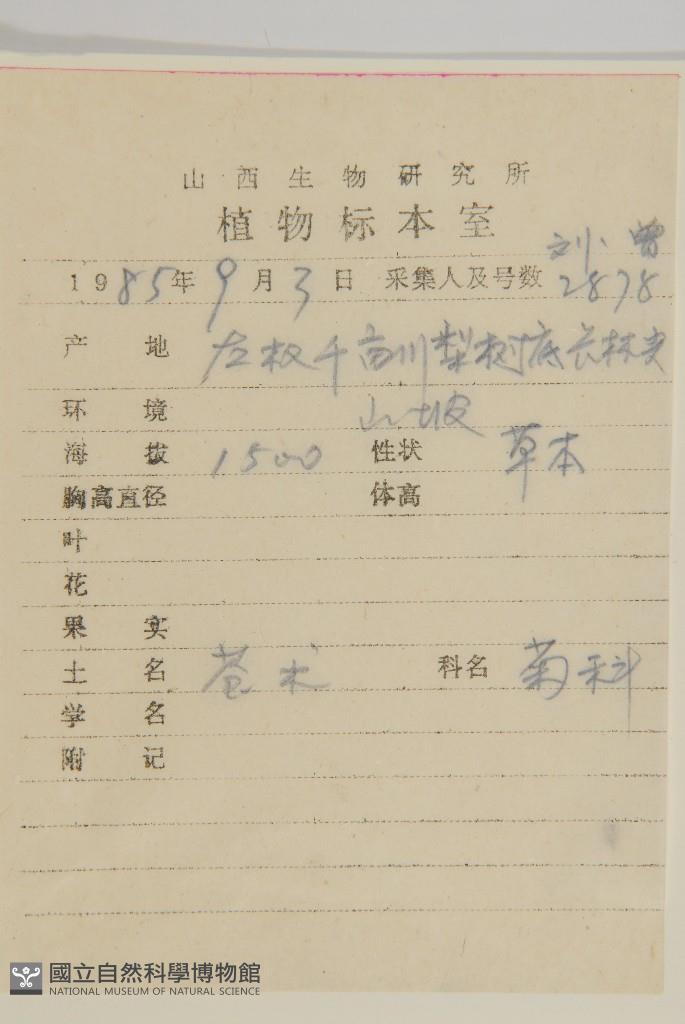 山西生物研究所
植物标本室
刘、曾
1985年9月3日 采集人及号数 2878
产地 左权千亩川梨树底长林
环境 山坡
海拔 1500 性状 草本
胸高直径 体高
叶
花
果实
土名 苍术 科名 菊科
学名
附记
國立自然科學博物館
NATIONAL MUSEUM OF NATURAL SCIENCE